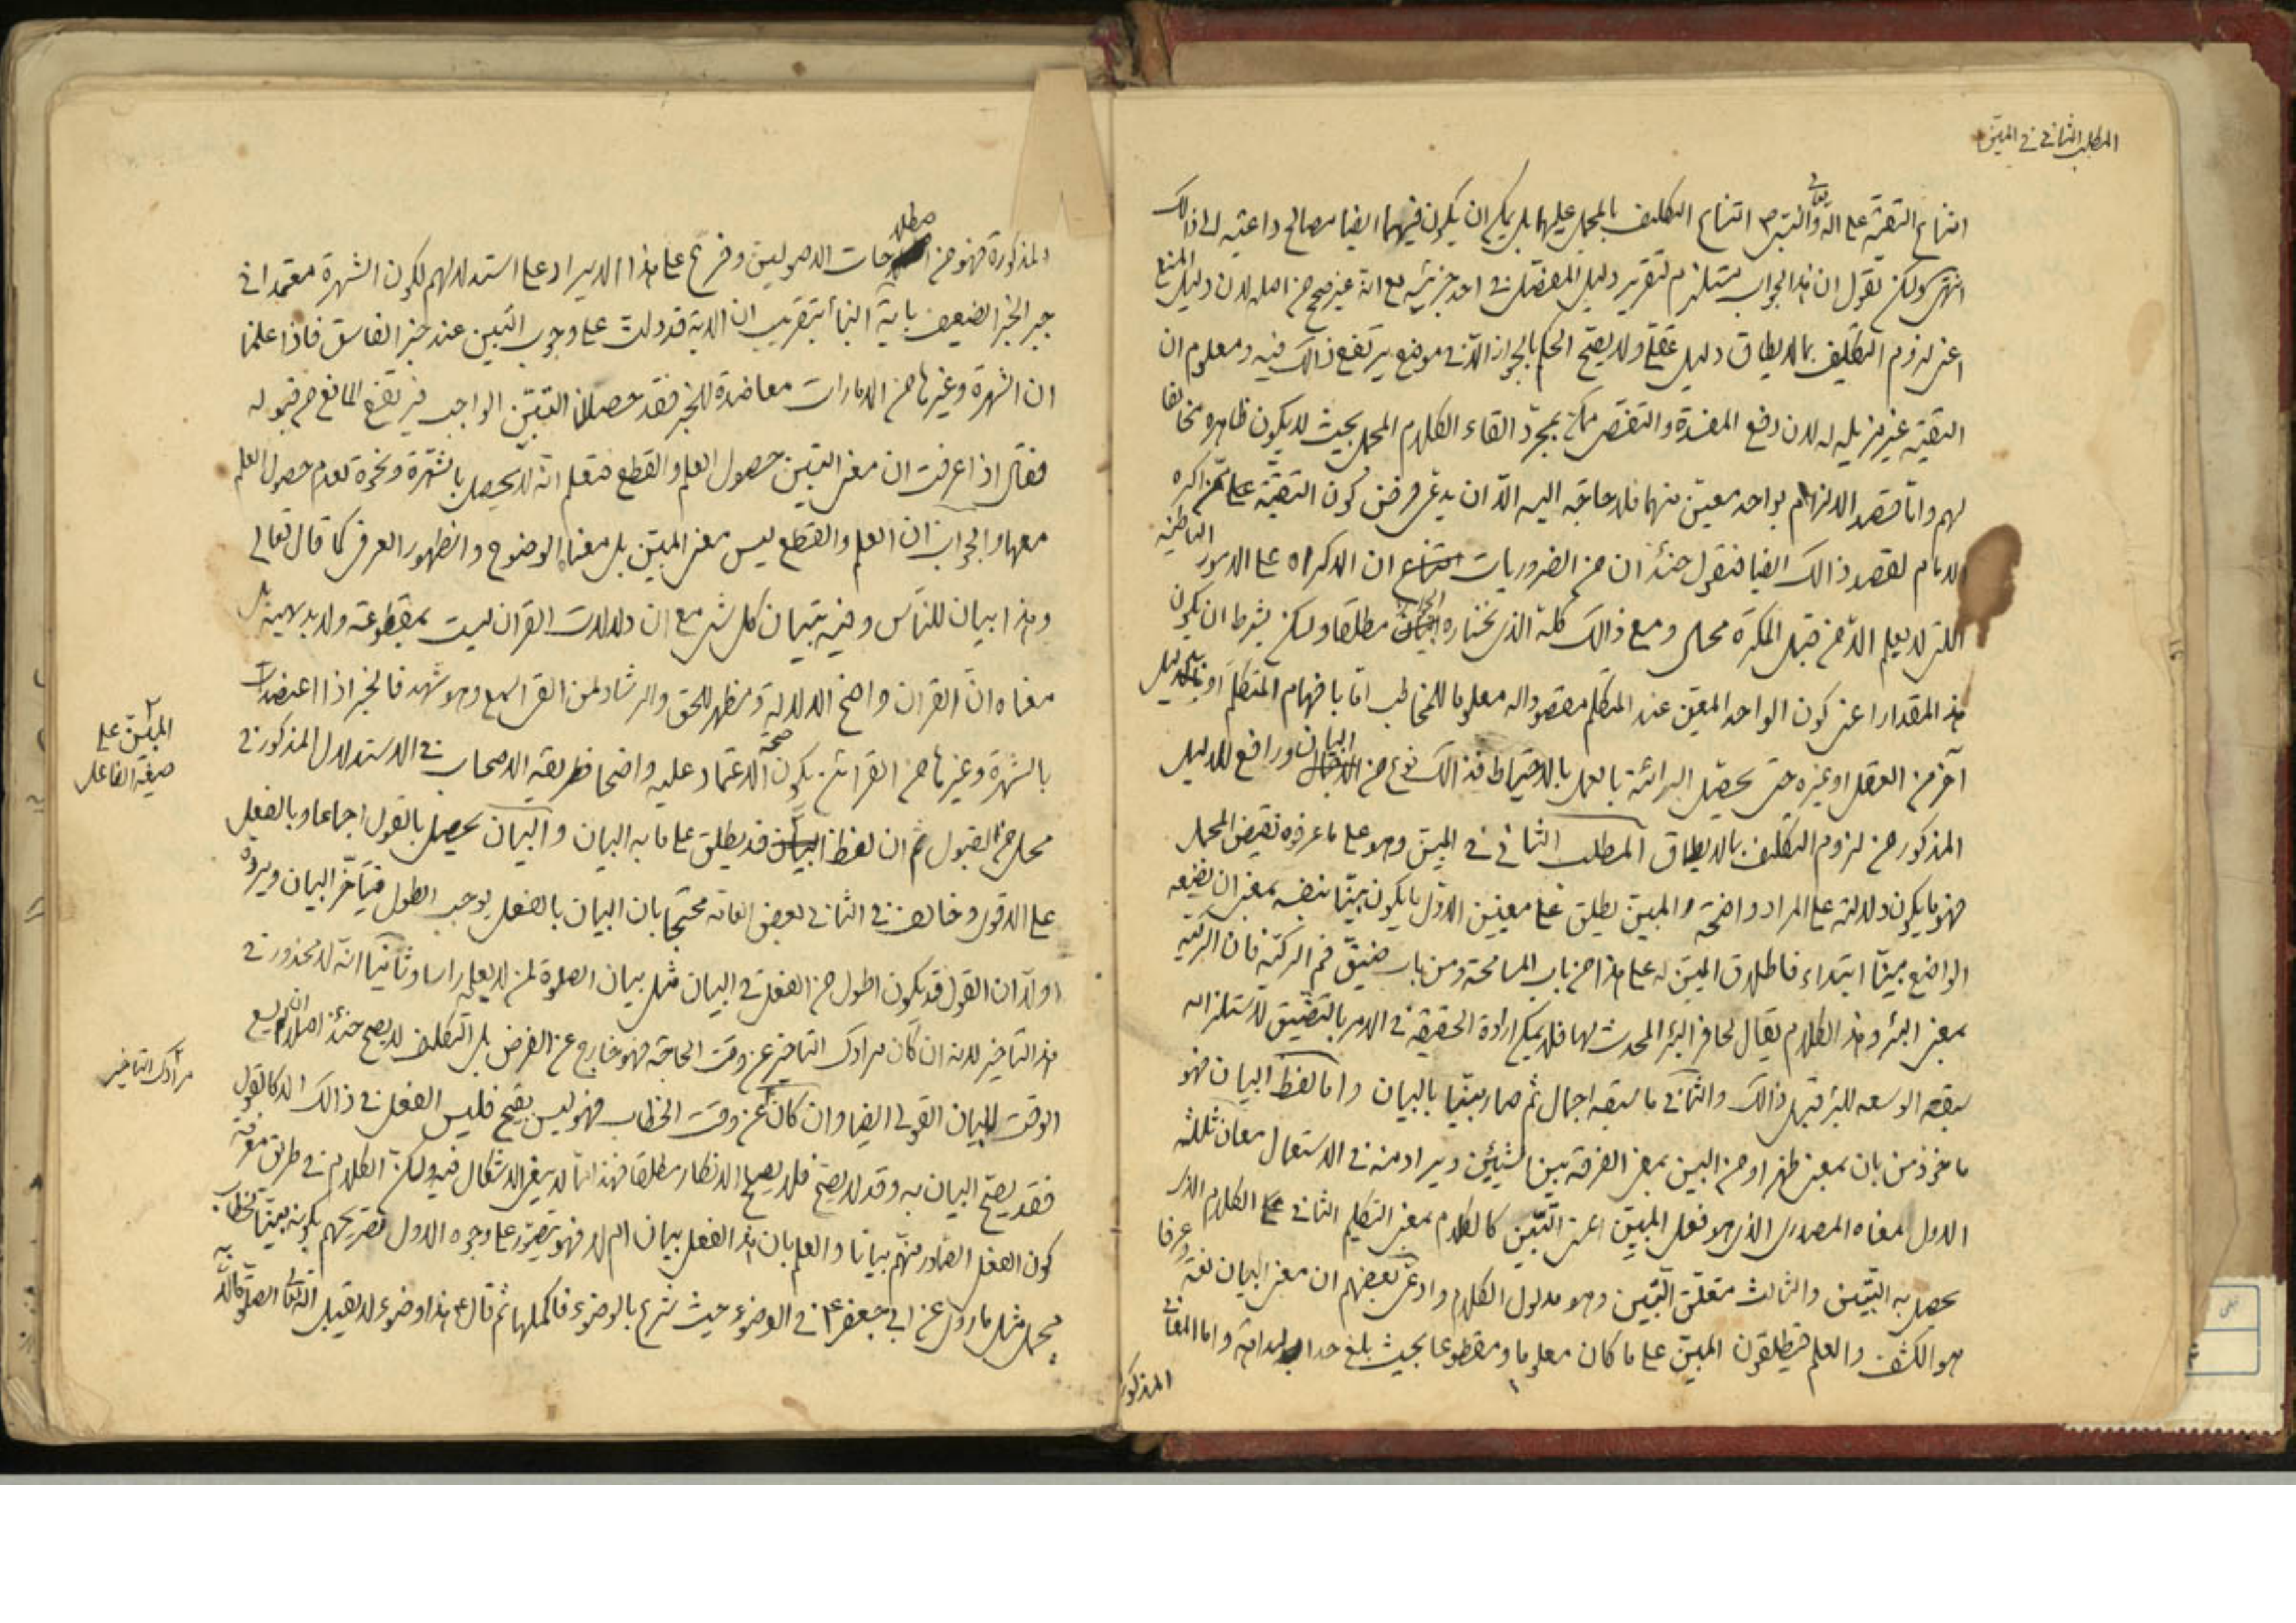 المطلب الثاني في المبيّن
امتناع التقية على الله تعالى والنبي ص امتناع التكليف بالمجمل عليهما بل يمكن ان يكون فيهما ايضا مصالح داعية الى ذالك
انتهى ولكن نقول ان هذا الجواب مستلزم لتقرير دليل المفصّل في احد جزئيه مع انه غير صحيح من اصله لان دليل المنع
اعني لزوم التكليف بما لا يطاق دليل عقلي ولا يصح الحكم بالجواز الا في موضع يرتفع ذالك فيه ومعلوم ان
التقية غير مزيلة له لان دفع المفسدة والتقصّر ممكن بمجرد القاء الكلام المجمل بحيث لا يكون ظاهره مخالفا
لهم واما قصد الالزام بواحد معيّن منهما فلا حاجة اليه الا ان يدعى فرض كون التقيّة على من اكره
الامام لقصد ذالك ايضا فنقول حينئذ ان من الضروريات امتناع ان الاكراه على الامور الباطنية
التي لا يعلم الا من قبل المكره محال ومع ذالك كله الذي نختاره الجواز مطلقا ولكن بشرط ان يكون
هذا المقدار اعني كون الواحد المعين عند المتكلم مقصودا له معلوما للمخاطب اما بافهام المتكلم او بدليل
آخر من العقل او غيره حتى يحصل البرائة بالعمل بالاحتياط فذالك نوع من البيان ورافع للدليل
المذكور من لزوم التكليف بما لا يطاق المطلب الثاني في المبين وهو على ما عرفوه نقيض المجمل
فهو ما يكون دلالته على المراد واضحة والمبين يطلق على معنيين الاول ما يكون بيّنا بنفسه بمعنى ان يضعه
الواضع مبينا ابتداء فاطلاق المبين له على هذا من باب المسامحة ومن باب ضيّق فم الركيّة فان الركيّة
بمعنى البئر وهذا الكلام يقال لحافر البئر المحدث لها فلا يمكن ارادة الحقيقة في الامر بالتضييق لاستلزامه
سبقه الوسعه للبئر قبل ذالك والثاني ما سبقه اجمال ثم صار مبيّنا بالبيان واما لفظ البيان فهو
ماخوذ من بان بمعنى ظهر او من البين بمعنى الفرقة بين الشيئين ويراد منه في الاستعمال معان ثلثه
الاول معناه المصدري الذي هو فعل المبيّن اعني التبيين كالكلام بمعنى التكليم الثاني على الكلام الذي
يحصل به التبيين والثالث متعلق التبيين وهو مدلول الكلام وادعى بعضهم ان معنى البيان لغة وعرفا
هو الكشف والعلم فيطلقون المبين على ما كان معلوما ومقطوعا بحيث بلغ حد البداهة واما المعاني
المذكورة
المذكورة فهو من اصطلاحات الاصوليين وفرع على هذا الايراد على استدلالهم لكون الشهرة معتمدا في
جبر الخبر الضعيف باية النبأ بتقريب ان الاية قد دلت على وجوب التبين عند خبر الفاسق فاذا علمنا
ان الشهرة وغيرها من الامارات معاضدة للخبر فقد حصل لنا التبيّن الواجب فيرتفع المانع من قبوله
فقال اذا عرفت ان معنى التبين حصول العلم والقطع فتعلم انه لا يحصل بالشهرة ونحوه لعدم حصول العلم
معها والجواب ان العلم والقطع ليس معنى المبين بل معناه الوضوح والظهور العرفي كما قال تعالى
وهذا بيان للناس وفيه تبيان كل شئ مع ان دلالات القرآن ليست بمقطوعة ولا بديهية بل
معناه ان القرآن واضح الدلالة ومظهر للحق والرشاد لمن القى السمع وهو شهيد فالخبر اذا اعتضد
بالشهرة وغيرها من القرائن يكون صحة الاعتماد عليه واضحا فطريقة الاصحاب في الاستدلال المذكور في
محله من القبول ثم ان لفظ البيان قد يطلق على ما به البيان والبيان يحصل بالقول اجماعا وبالفعل
على الاقوى وخالف في الثاني بعض العامة محتجّا بان البيان بالفعل يوجب الطول فيتأخر البيان ويرده
اولا ان القول قد يكون اطول من الفعل في البيان مثل بيان الصلوة لمن لا يعلم راسا وثانيا انه لا محذور في
هذا التاخير لانه ان كان مرادك التاخير عن وقت الحاجة فهو خارج عن الفرض بل التكليف لا يصح حينئذ اصلا ان لم يسع
الوقت للبيان القولي ايضا وان كان عن وقت الخطاب فهو ليس بقبيح فليس الفعل في ذالك الا كالقول
فقد يصح البيان به وقد لا يصح فلا يصح الانكار مطلقا فهذا مما لا ينبغي الاشكال فيه ولكن الكلام في طريق معرفة
كون الفعل الصادر منهم بيانا والعلم بان هذا الفعل بيان ام لا فهو يتصور على وجوه الاول تصريحهم بكونه مبينا لخطاب
مجمل مثل ما روى عن ابي جعفر ع في الوضوء حيث شرع بالوضوء فاكملها ثم قال ع هذا وضوء لا يقبل الله الصلوة الا به
المبيّن على
صيغة الفاعل
مرادك التاخير